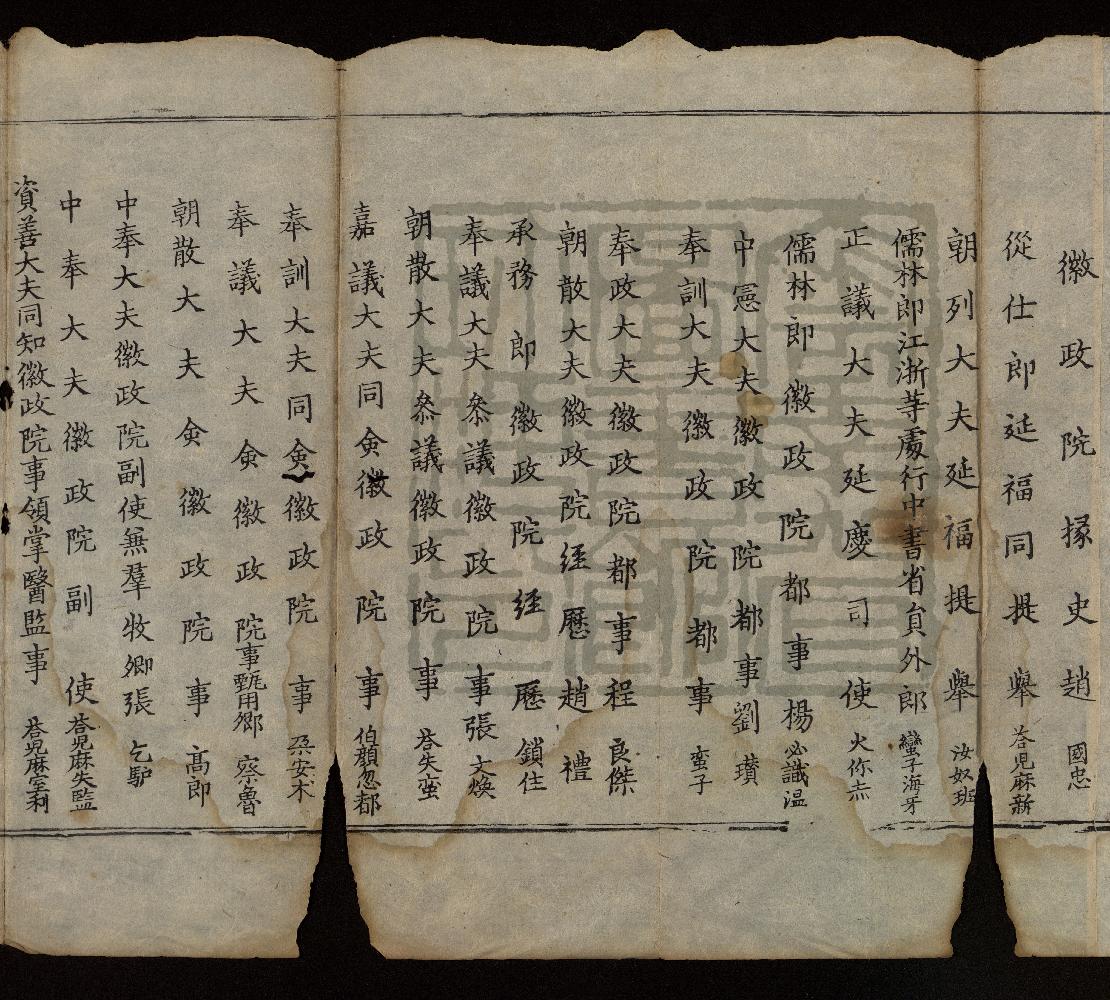 徽政院掾史趙國忠
從仕郎延福同提舉荅児麻新
朝列大夫延福提舉汝奴班
儒林郎江浙等䖏行中書省貟外郎蠻子海牙
正議大夫延慶司使火你赤
儒林郎徽政院都事楊必識温
中憲大夫徽政院都事劉瓚
奉訓大夫徽政院都事蛮子
奉政大夫徽政院都事程良傑
朝散大夫徽政院經歷趙禮
承務郎徽政院經歷鎖住
奉議大夫叅議徽政院事張文煥
朝散大夫叅議徽政院事荅失蛮
嘉議大夫同僉徽政院事伯顔忽都
奉訓大夫同僉徽政院事朶安术
奉議大夫僉徽政院事甄用卿察魯
朝散大夫僉徽政院事髙郎
中奉大夫徽政院副使無羣牧卿張乞馿
中奉大夫徽政院副使荅児麻失監
資善大夫同知徽政院事領掌醫監事荅児麻室利